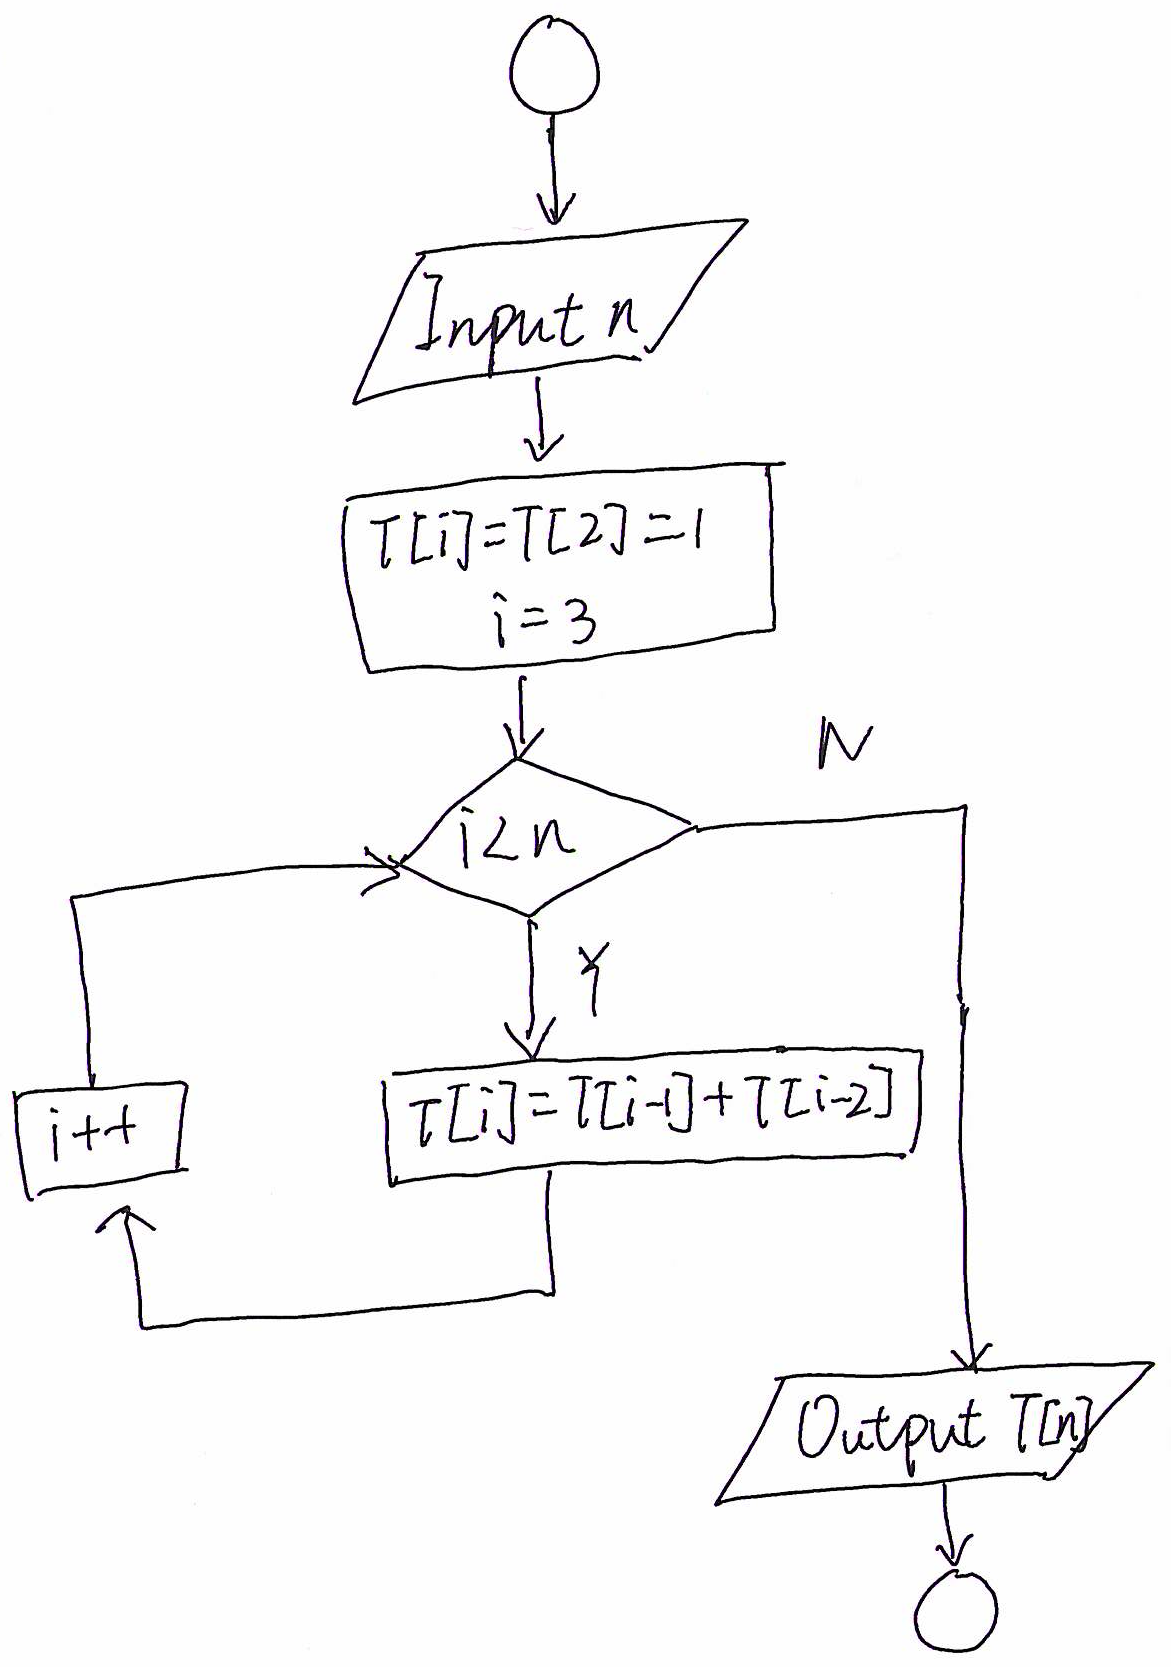 Input n
T[i]=T[2]=1
i=3
i<n
N
Y
T[i]=T[i-1]+T[i-2]
i++
Output T[n]